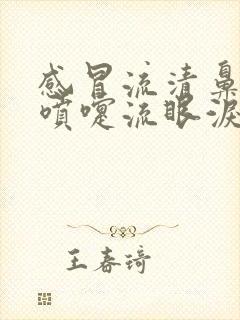 感冒流清鼻
喷嚏流眼泪
王春琦